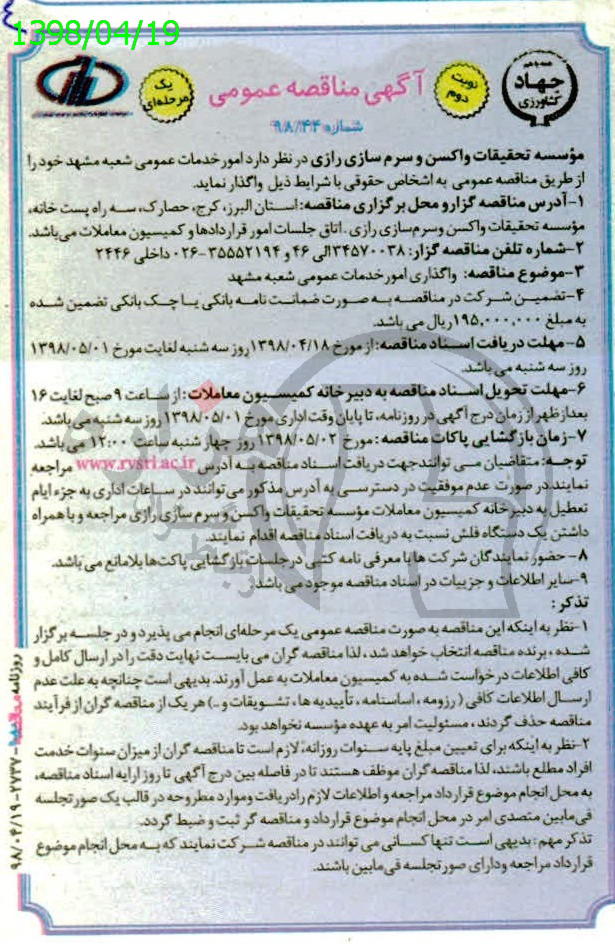 1398/04/19
همه با هم
جهاد
کشاورزی
نوبت
دوم
آگهی مناقصه عمومی
یک
مرحله‌ای
شماره ۹۸/۴۴
مؤسسه تحقیقات واکسن و سرم سازی رازی در نظر دارد امور خدمات عمومی شعبه مشهد خود را
از طریق مناقصه عمومی به اشخاص حقوقی با شرایط ذیل واگذار نماید.
۱-آدرس مناقصه گزار و محل برگزاری مناقصه: استان البرز، کرج، حصارک، سه راه پست خانه،
مؤسسه تحقیقات واکسن وسرم‌سازی رازی . اتاق جلسات امور قراردادها و کمیسیون معاملات می‌باشد.
۲-شماره تلفن مناقصه گزار: ۳۴۵۷۰۰۳۸الی ۴۶ و ۳۵۵۵۲۱۹۴-۰۲۶ داخلی ۲۴۴۶
۳-موضوع مناقصه: واگذاری امور خدمات عمومی شعبه مشهد
۴-تضمین شرکت در مناقصه به صورت ضمانت نامه بانکی یا چک بانکی تضمین شده
به مبلغ ۱۹۵,۰۰۰,۰۰۰ریال می باشد.
۵-مهلت دریافت اسناد مناقصه: از مورخ ۱۳۹۸/۰۴/۱۸روز سه شنبه لغایت مورخ ۱۳۹۸/۰۵/۰۱
روز سه شنبه می باشد.
۶-مهلت تحویل اسناد مناقصه به دبیر خانه کمیسیون معاملات: از ساعت ۹ صبح لغایت ۱۶
بعداز ظهر از زمان درج آگهی در روزنامه، تا پایان وقت اداری مورخ ۱۳۹۸/۰۵/۰۱ روز سه شنبه می باشد.
۷-زمان بازگشایی پاکات مناقصه: مورخ ۱۳۹۸/۰۵/۰۲ روز چهار شنبه ساعت ۱۲:۰۰ می باشد.
توجه: متقاضیان می توانند جهت دریافت اسناد مناقصه به آدرس www.rvsri.ac.ir مراجعه
نمایند.در صورت عدم موفقیت در دسترسی به آدرس مذکور می‌توانند در ساعات اداری به جزء ایام
تعطیل به دبیر خانه کمیسیون معاملات مؤسسه تحقیقات واکسن و سرم سازی رازی مراجعه و با همراه
داشتن یک دستگاه فلش نسبت به دریافت اسناد مناقصه اقدام نمایند.
۸-حضور نمایندگان شرکت ها با معرفی نامه کتبی در جلسات بازگشایی پاکت‌ها بلامانع می باشد.
۹-سایر اطلاعات و جزییات در اسناد مناقصه موجود می باشد.
تذکر:
۱-نظر به اینکه این مناقصه به صورت مناقصه عمومی یک مرحله‌ای انجام می پذیرد و در جلسه برگزار
شده ، برنده مناقصه انتخاب خواهد شد ، لذا مناقصه گران می بایست نهایت دقت را در ارسال کامل و
کافی اطلاعات درخواست شده به کمیسیون معاملات به عمل آورند. بدیهی است چنانچه به علت عدم
ارسال اطلاعات کافی ( رزومه ، اساسنامه ، تأییدیه ها ، تشویقات و ..) هر یک از مناقصه گران از فرآیند
مناقصه حذف گردند ، مسئولیت امر به عهده مؤسسه نخواهد بود.
۲-نظر به اینکه برای تعیین مبلغ پایه سنوات روزانه، لازم است تا مناقصه گران از میزان سنوات خدمت
افراد مطلع باشند، لذا مناقصه گران موظف هستند تا در فاصله بین درج آگهی تا روز ارایه اسناد مناقصه،
به محل انجام موضوع قرارداد مراجعه و اطلاعات لازم را دریافت وموارد مطروحه در قالب یک صورتجلسه
فی مابین متصدی امر در محل انجام موضوع قرارداد و مناقصه گر ثبت و ضبط گردد.
تذکر مهم: بدیهی است تنها کسانی می توانند در مناقصه شرکت نمایند که به محل انجام موضوع
قرارداد مراجعه ودارای صورتجلسه فی مابین باشند.
روزنامه مناقصه - ۲۷۳۷ - ۹۸/۰۴/۱۹